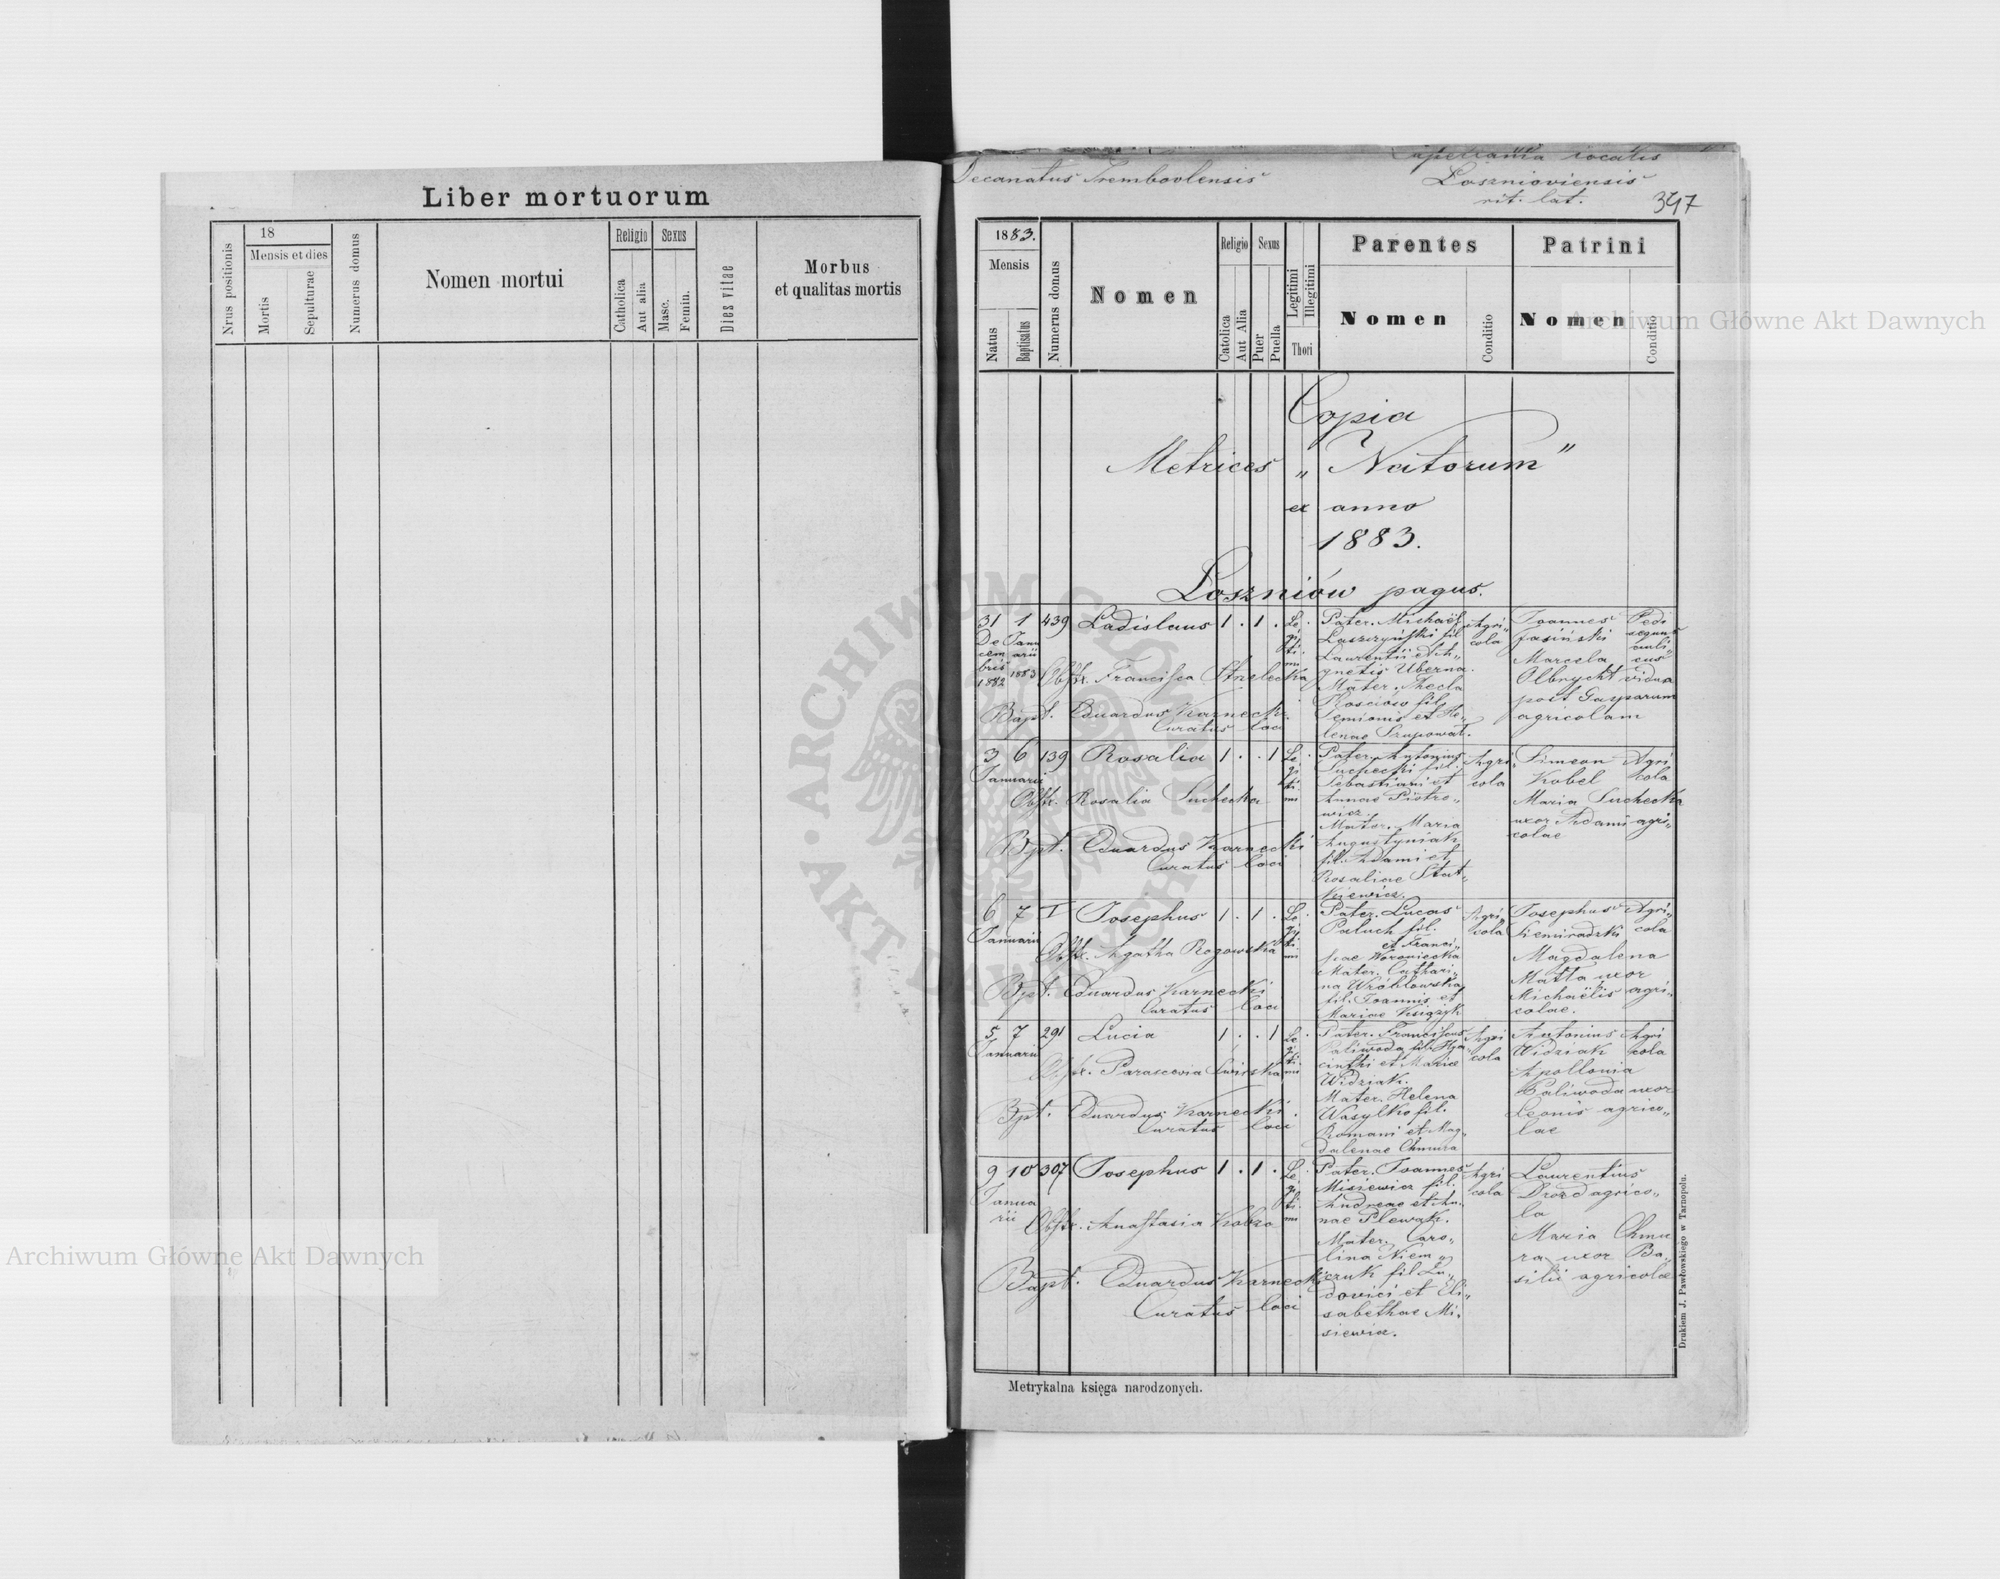 Liber mortuorum
Nrus positionis
18
Mensis et dies
Mortis
Sepulturae
Numerus domus
Nomen mortui
Religio
Catholica
Aut alia
Sexus
Masc.
Femin.
Dies vitae
Morbus
et qualitas mortis
Decanatus Trembovlensis
Capellania localis
Losznioviensis
rit. lat.
397
1883.
Mensis
Natus
Baptisatus
Numerus domus
Nomen
Religio
Catolica
Aut Alia
Sexus
Puer
Puella
Legitimi
Illegitimi
Thori
Parentes
Nomen
Conditio
Patrini
Nomen
Conditio
Copia
Metrices „Natorum"
ex anno
1883.
Loszniów pagus.
31 1 439 Ladislaus 1 . 1 .
De Janu
cem arii
bris 1883
1882
Le
gi
ti
mi
Obstr. Francisca Strzelecka
Bapt. Eduardus Karnecki
Curatus loci
Pater. Michaël
Laszczyński fil.
Laurentii et A„
gnetis Uberna.
Mater. Thecla
Kościów fil.
Semionis et He„
lenae Szupowat.
Agri„
cola
Joannes
Jasiński
Pedi
sequus
Marcela
Olbrycht vidua
post Gasparum
agricolam
3 6 139 Rosalia 1 . . 1
Januarii
Le
gi
ti
mi
Obstr. Rosalia Suchecka
Bpt. Eduardus Karnecki
Curatus loci
Pater. Antonius
Suchecki fil.
Sebastiani et
Annae Piotro„
wicz.
Mater. Maria
Augustyniak
fil. Adami et
Rosaliae Stat„
kiewicz.
Agri„
cola
Simeon
Kobel
Agri
cola
Maria Suchecka
uxor Adami agri„
colae
6 7 1 Josephus 1 . 1 .
Januarii
Le
gi
ti
mi
Obstr. Agatha Rogowska
Bpt. Eduardus Karnecki
Curatus loci
Pater. Lucas
Paluch fil.
et Franci„
scae Woroniecka
Mater. Cathari„
na Wróblewska
fil. Joannis et
Mariae Książyk
Agri„
cola
Josephus
Siemiradzki
Agri„
cola
Magdalena
Matta uxor
Michaëlis agri„
colae.
5 7 291 Lucia 1 . . 1
Januarii
Le
gi
ti
mi
Obstr. Parascevia Świrska
Bpt. Eduardus Karnecki
Curatus loci
Pater. Franciscus
Paliwoda fil. Hya„
cinthi et Mariae
Widziak.
Mater. Helena
Wasylko fil.
Romani et Mag„
dalenae Chmura
Agri
cola
Antonius
Widziak
Agri
cola
Apollonia
Paliwoda uxor
Leonis agrico„
lae
9 10 397 Josephus 1 . 1 .
Janua
rii
Le
gi
ti
mi
Obstr. Anastasia Kobza
Bapt. Eduardus Karnecki
Curatus loci
Pater. Joannes
Misiewicz fil.
Andreae et An„
nae Plewak.
Mater. Caro„
lina Niem„
czuk fil Lu„
dovici et Eli„
sabethae Mi„
siewicz.
Agri
cola
Laurentius
Drozd agrico„
la
Maria Chmu
ra uxor Ba„
silii agricolae
Metrykalna księga narodzonych.
Drukiem J. Pawłowskiego w Tarnopolu.
Archiwum Główne Akt Dawnych
Archiwum Główne Akt Dawnych
ARCHIWUM GŁÓWNE AKT DAWNYCH